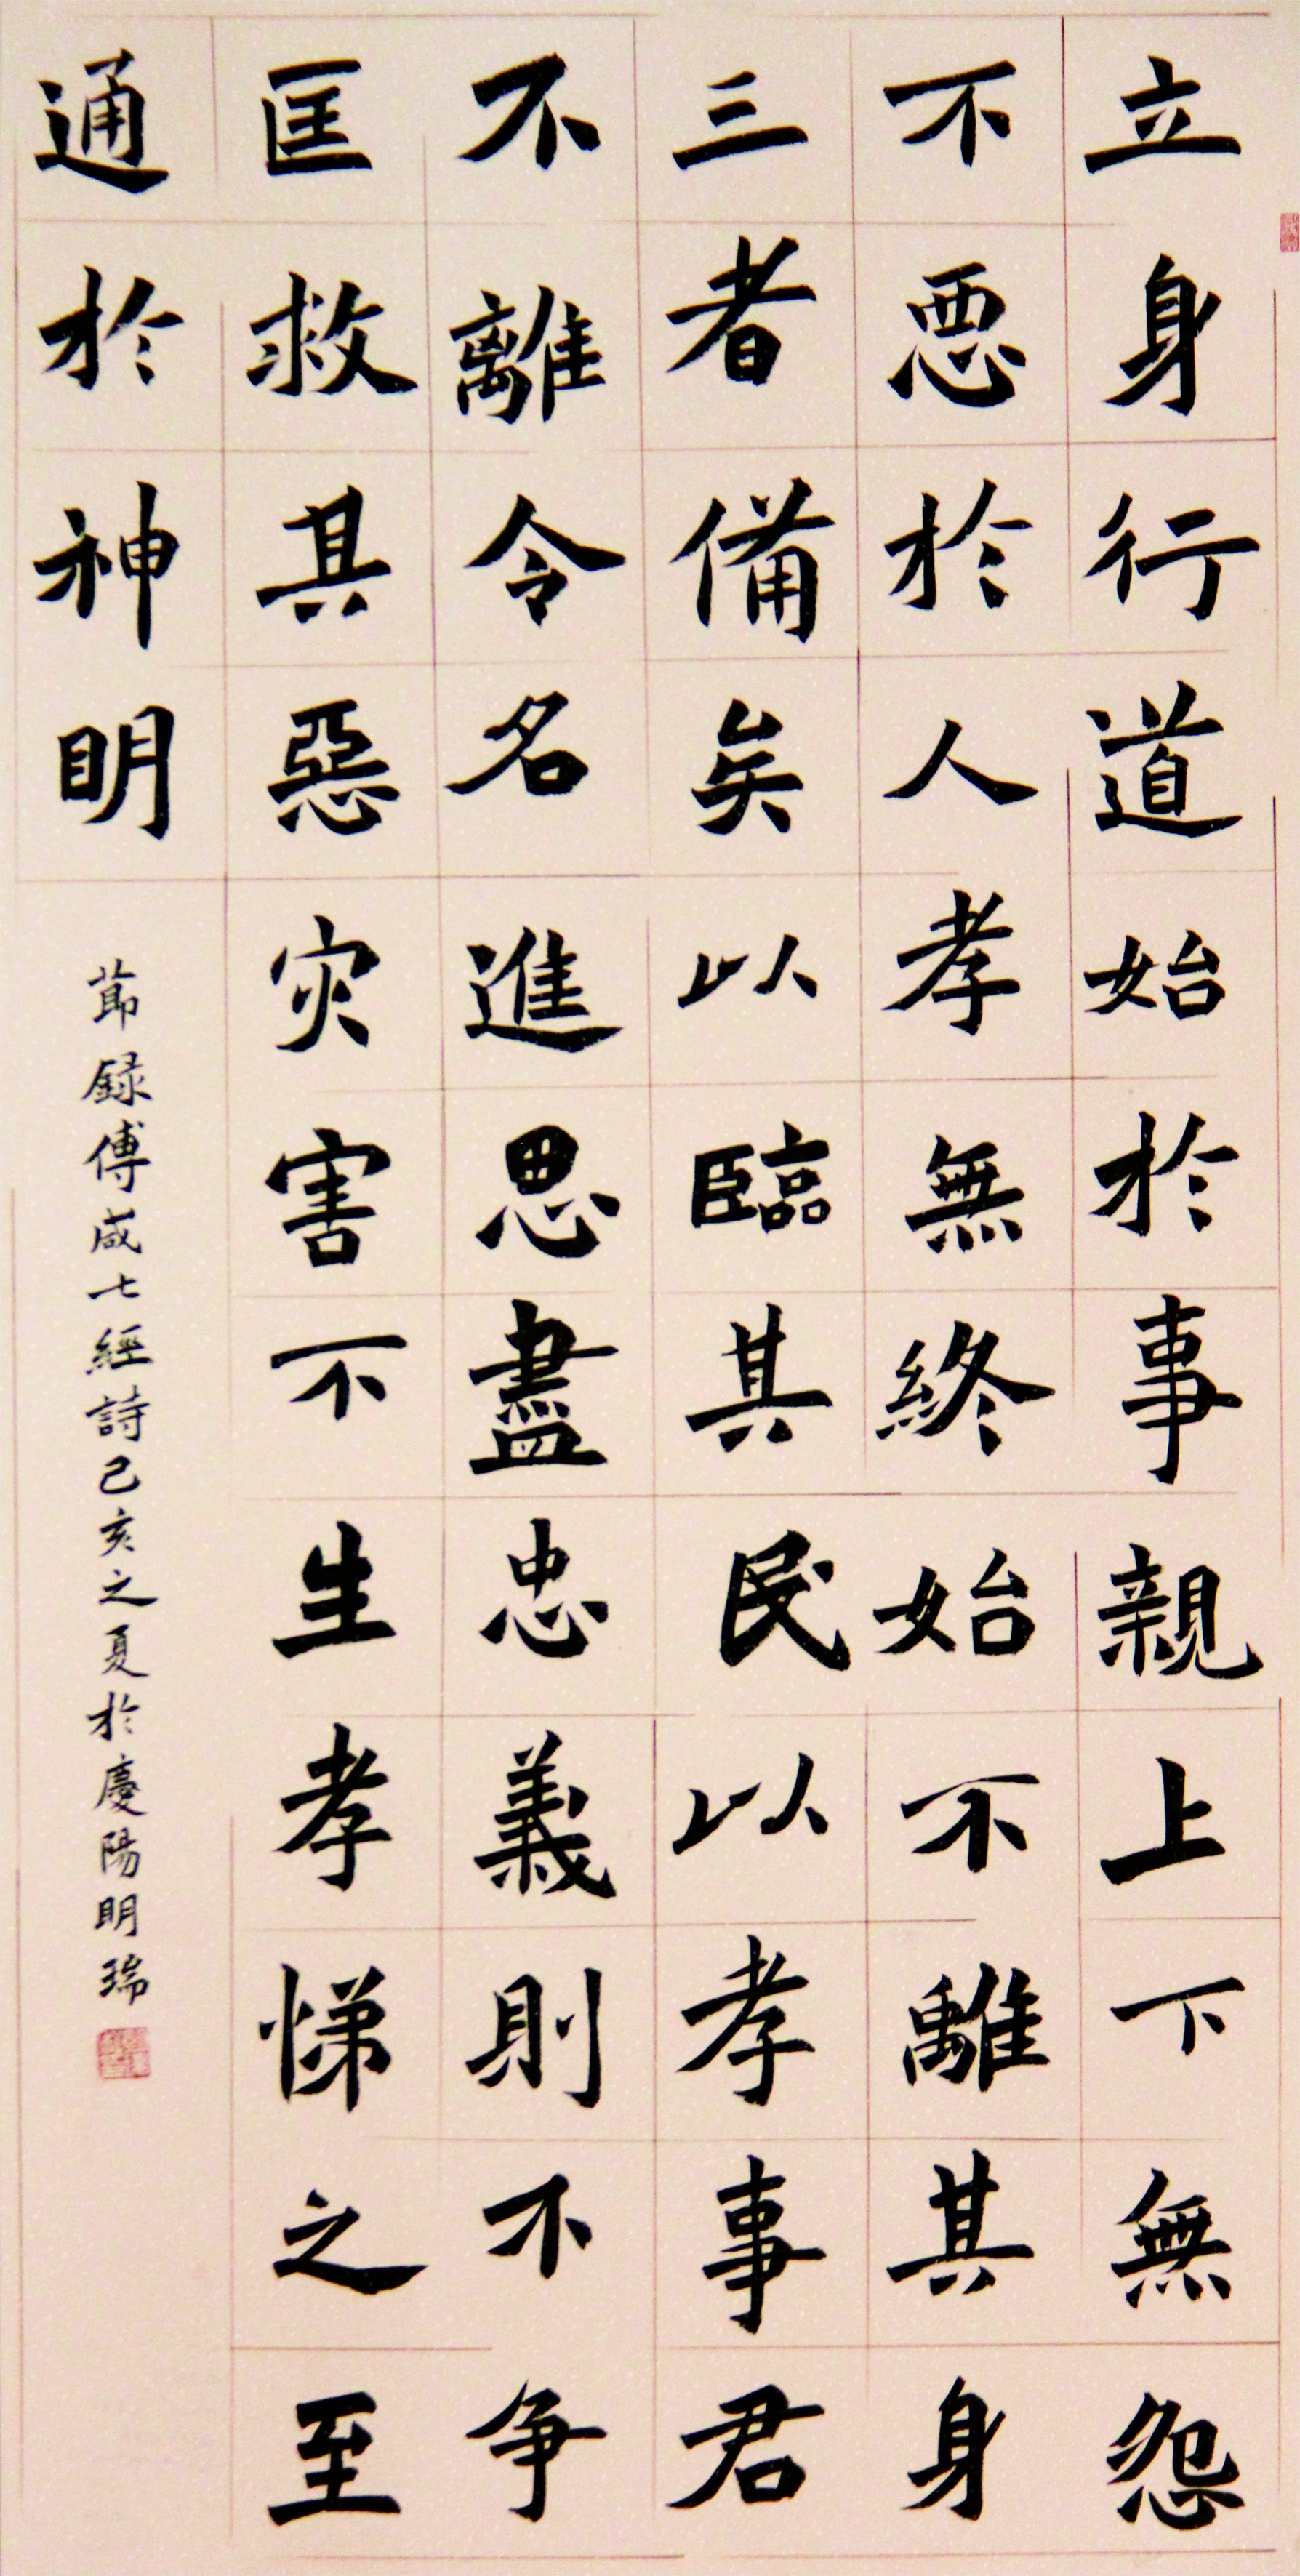 立身行道始於事親上下無怨
不惡於人孝無終始不離其身
三者備矣以臨其民以孝事君
不離令名進思盡忠義則不争
匡救其惡灾害不生孝悌之至
通於神明
節録傅咸七經詩己亥之夏於慶陽明瑞